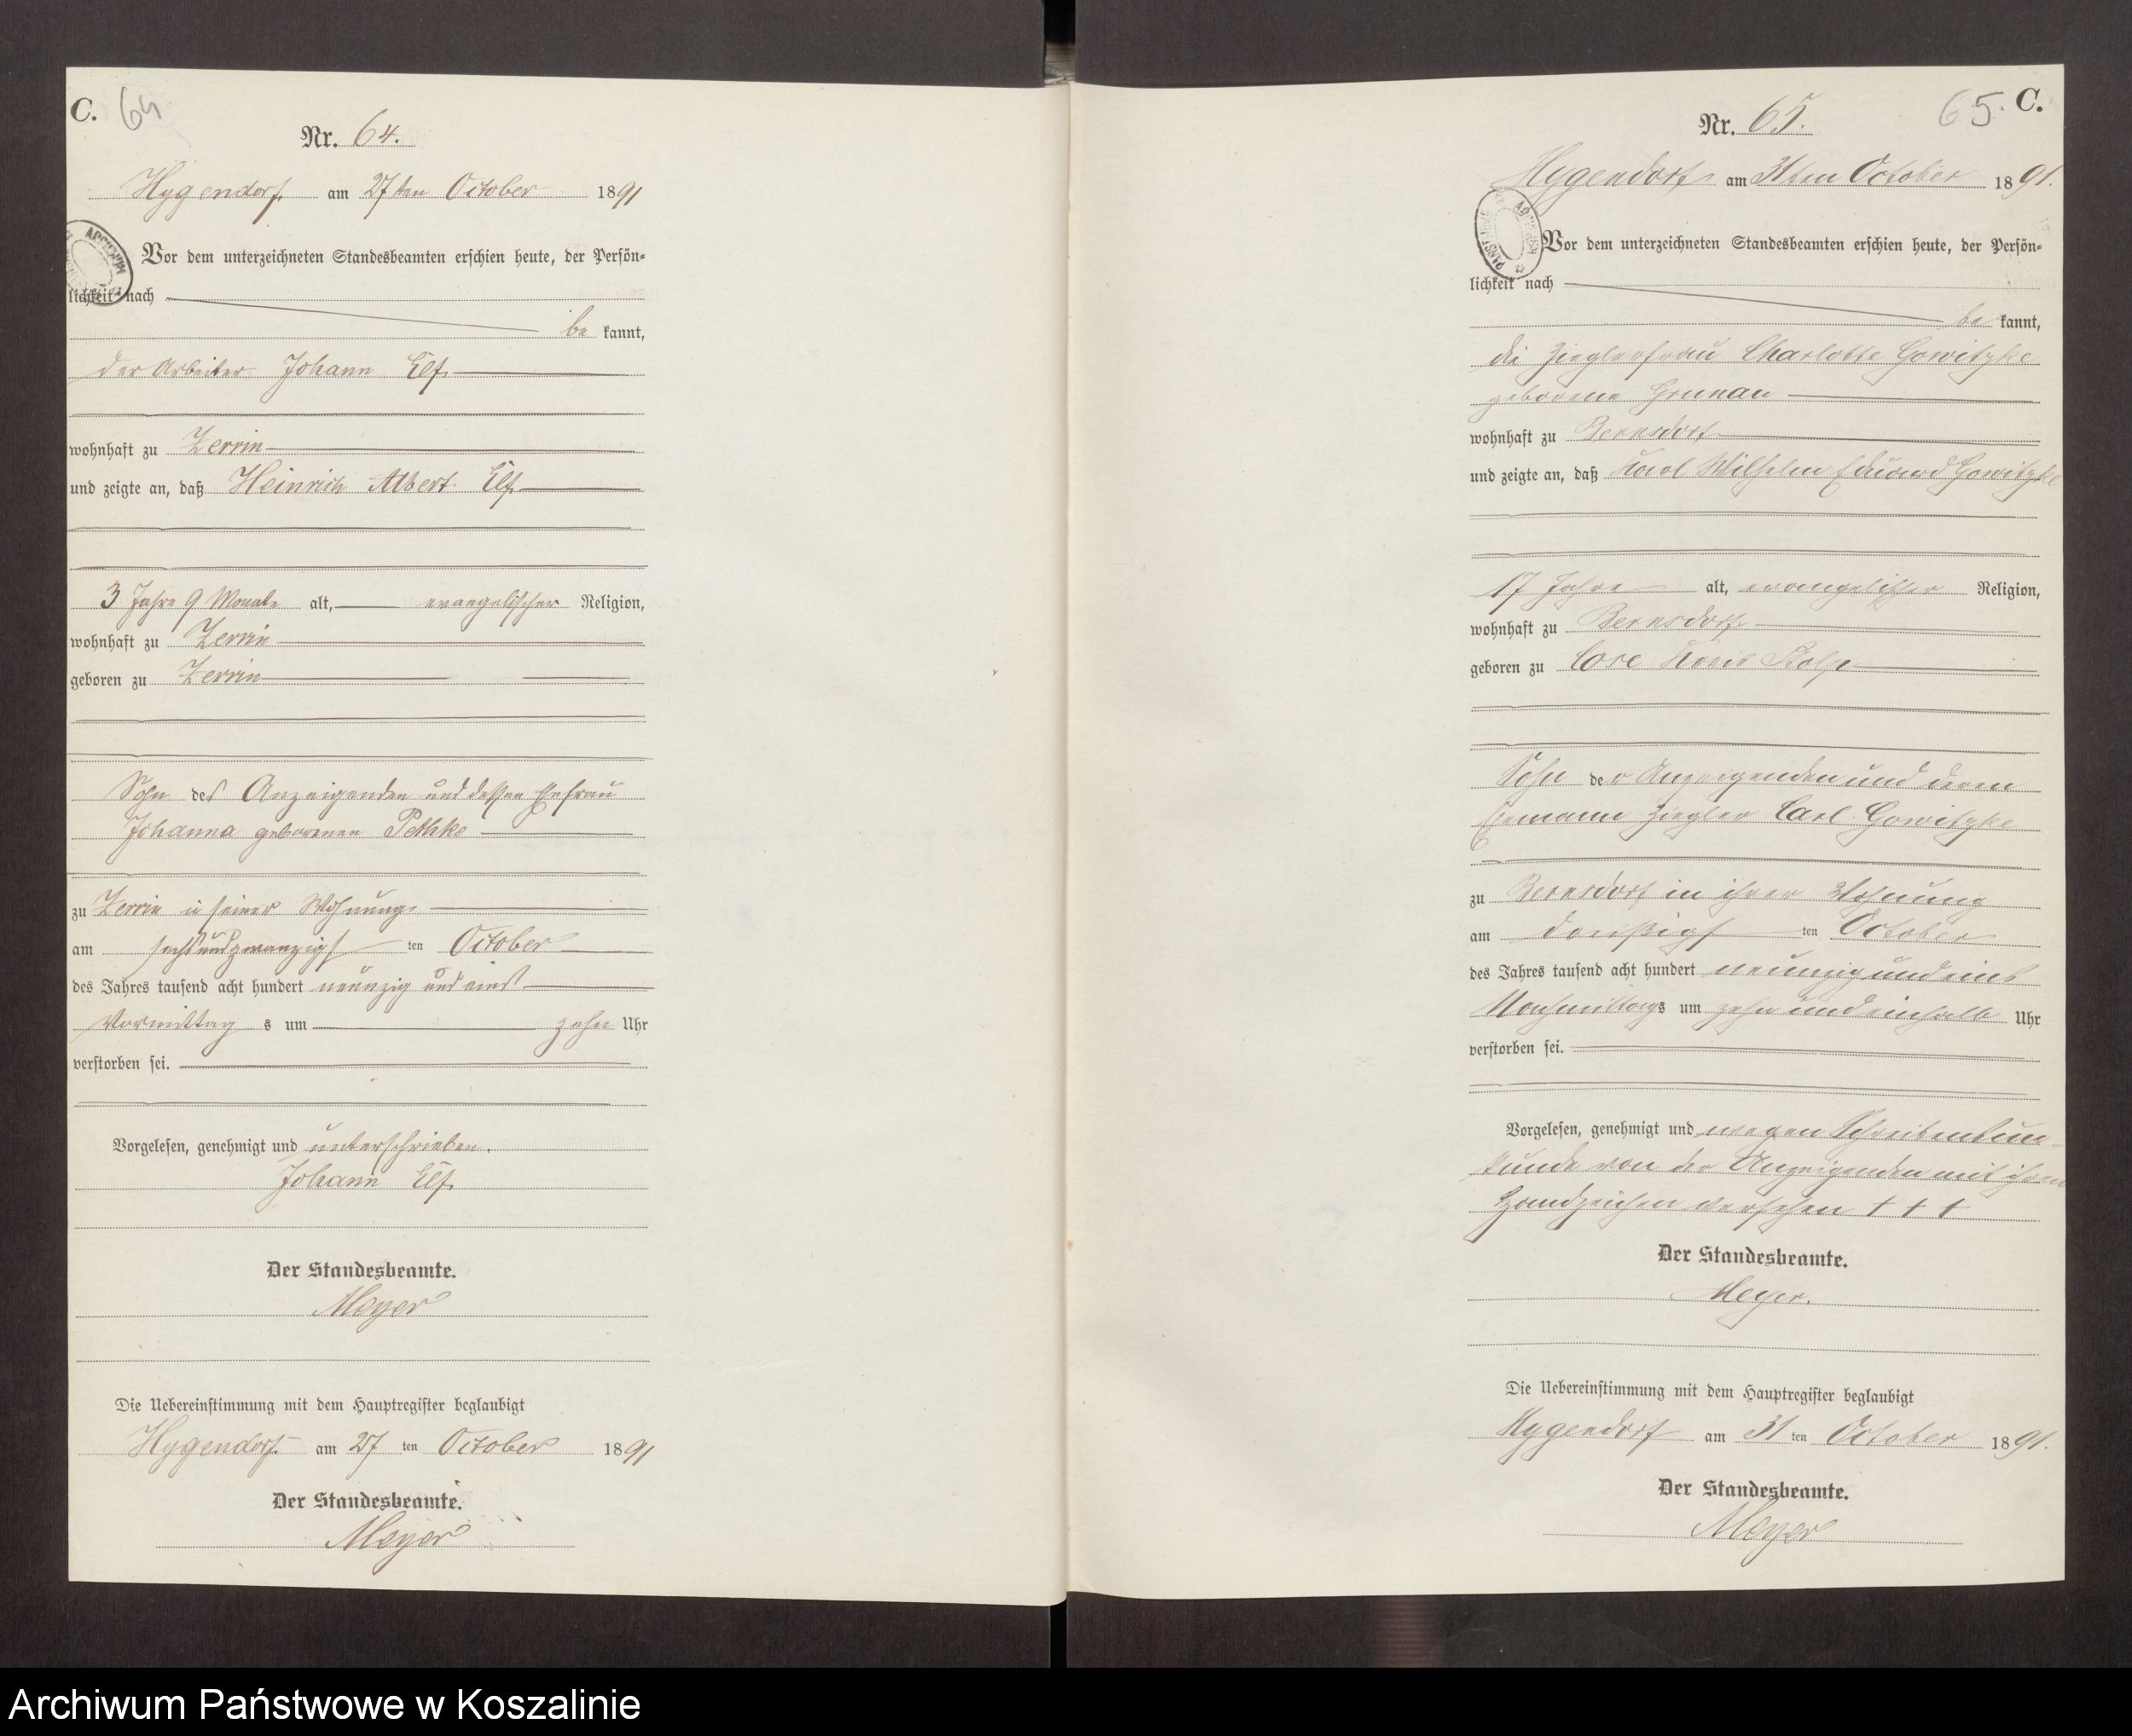 C. 64
Nr. 64.
Hygendorf am 27ten October 1891
Vor dem unterzeichneten Standesbeamten erschien heute, der Persön=
lichkeit nach
be kannt,
der Arbeiter Johann Elf
wohnhaft zu Zerrin
und zeigte an, daß Heinrich Albert Elf
3 Jahre 9 Monate alt, evangelischer Religion,
wohnhaft zu Zerrin
geboren zu Zerrin
Sohn des Anzeigenden und dessen Ehefrau
Johanna geborenen Pethke
zu Zerrin in seiner Wohnung
am sechsundzwanzigs ten October
des Jahres tausend acht hundert neunzig und eins
Vormittag s um zehn Uhr
verstorben sei.
Vorgelesen, genehmigt und unterschrieben.
Johann Elf
Der Standesbeamte.
Meyer
Die Uebereinstimmung mit dem Hauptregister beglaubigt
Hygendorf am 27 ten October 1891
Der Standesbeamte.
Meyer
65. C.
Nr. 65.
Hygendorf am 31ten October 1891.
ARCHIWUM PAŃSTWOWE
Vor dem unterzeichneten Standesbeamten erschien heute, der Persön=
lichkeit nach
be kannt,
die Zieglerfrau Charlotte Gowitzke
geborene Grunau
wohnhaft zu Bernsdorf
und zeigte an, daß Karl Wilhelm Eduard Gowitzke
17 Jahre alt, evangelischer Religion,
wohnhaft zu Bernsdorf
geboren zu Lose Kreis Stolp
Sohn der Anzeigenden und deren
Ehemann Ziegler Carl Gowitzke
zu Bernsdorf in ihrer Wohnung
am dreißigs ten October
des Jahres tausend acht hundert neunzig und eins
Nachmittags um zehn und einhalb Uhr
verstorben sei.
Vorgelesen, genehmigt und wegen Schreibensun-
kunde von der Anzeigenden mit ihren
Handzeichen versehen + + +
Der Standesbeamte.
Meyer.
Die Uebereinstimmung mit dem Hauptregister beglaubigt
Hygendorf am 31 ten October 1891.
Der Standesbeamte.
Meyer
Archiwum Państwowe w Koszalinie